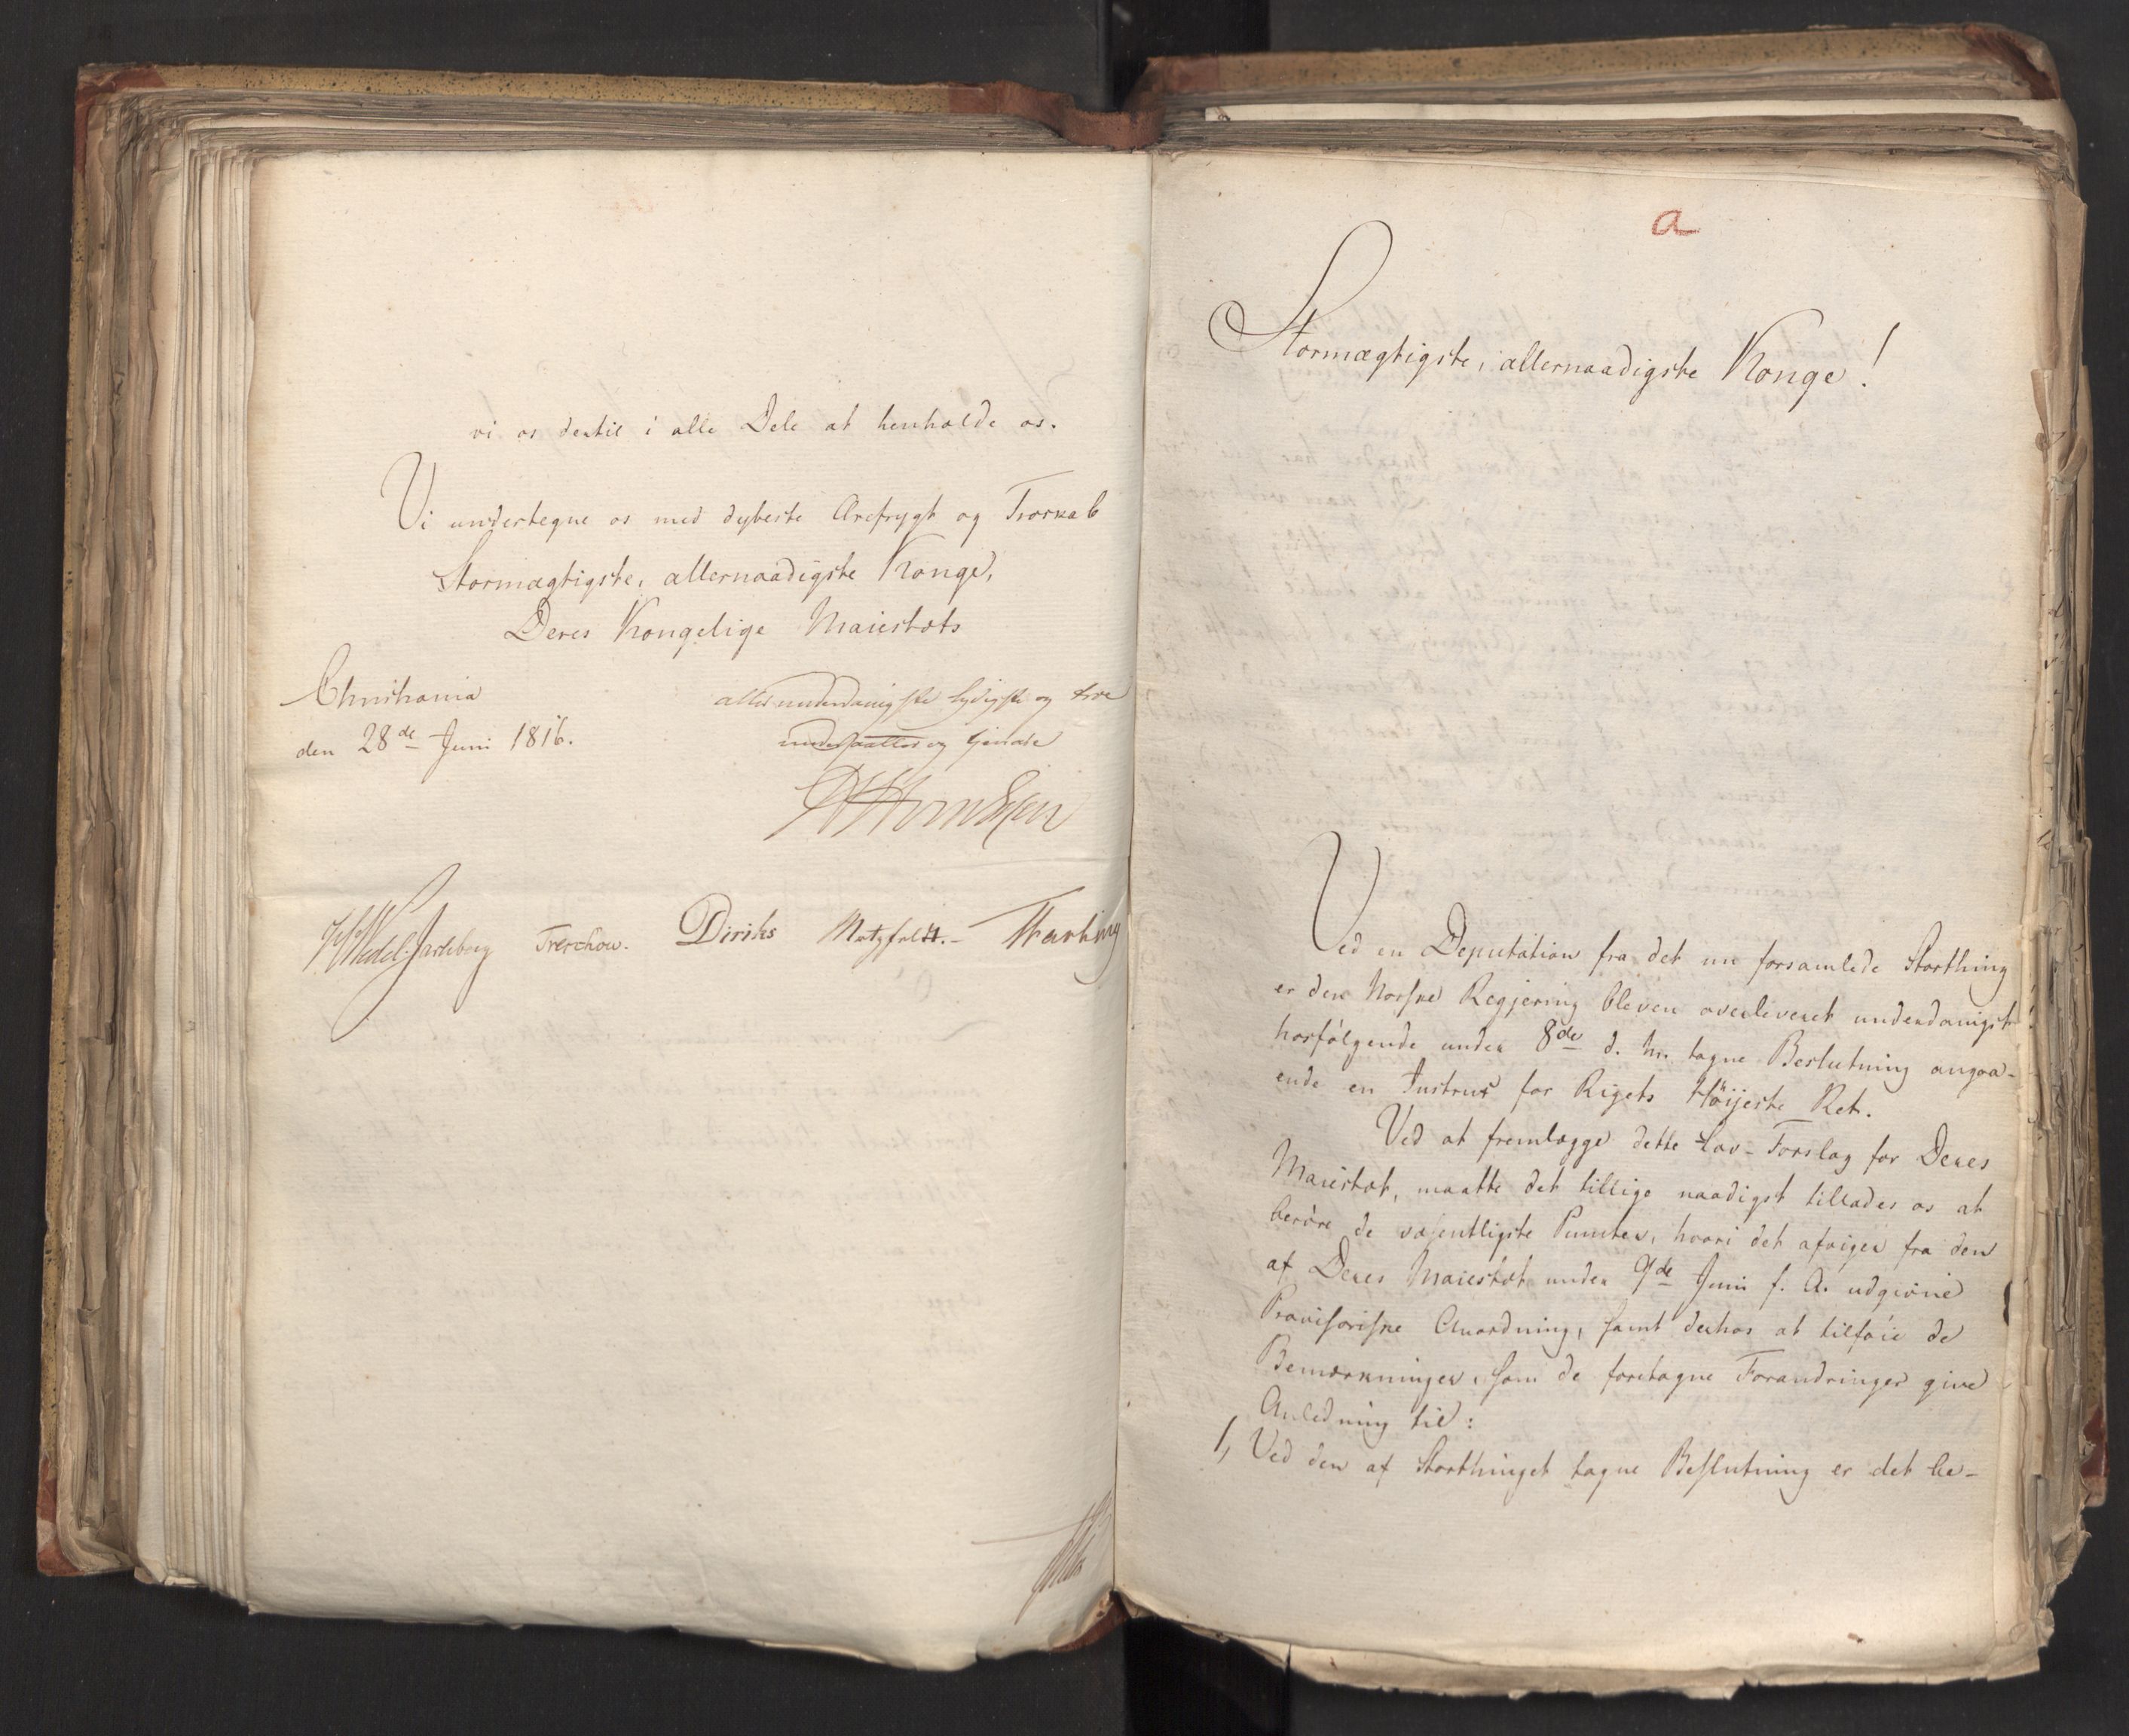 vi os dertil i alle Dele at henholde os.
Vi undertegne os med dybeste Ærefrygt og Troskab
Stormægtigste, allernaadigste Konge,
Deres Kongelige Maiestæts
Christiania
den 28de Juni 1816.
allerunderdanigste lydigste og troe
undersaatter og tjenere
Wedel-Jarlsberg Treschow. Diriks Motzfeldt. Thaulow
a
Stormægtigste, allernaadigste Konge!
Ved en Deputation fra det nu forsamlede Storthing
er den Norske Regjering bleven overleveret underdanigst
hosfølgende under 8de d. M. tagne Beslutning angaa-
ende en Instrux for Rigets Höijeste Ret.
Ved at fremlægge dette Lov-Forslag for Deres
Maiestæt, maatte det tillige naadigst tillades os at
berøre de væsentligste Puncter, hvori det afviger fra den
af Deres Maiestæt under 9de Juni f. A. udgivne
Provisoriske Anordning, samt derhos at tilføie de
Bemærkninger, som de foretagne Forandringer give
Anledning til:
1, Ved den af Storthinget tagne Beslutning er det be-